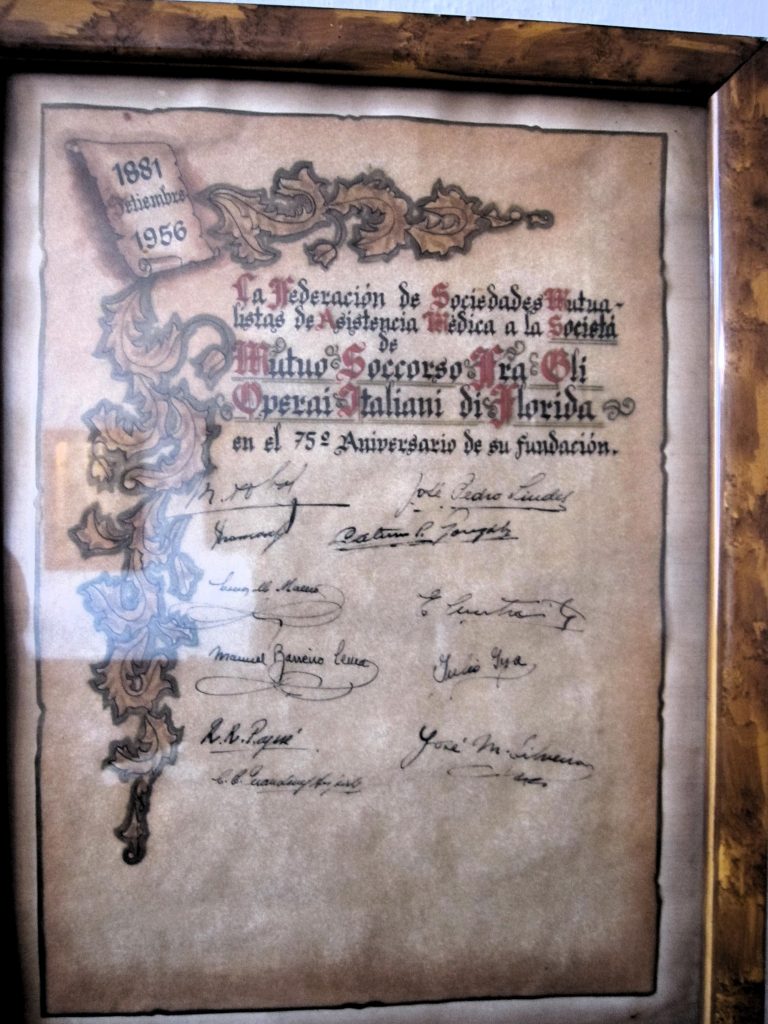 1881
Setiembre
1956
La Federación de Sociedades Mutua-
listas de Asistencia Médica a la Societá
de
Mutuo Soccorso Fra Gli
Operai Italiani di Florida
en el 75º Aniversario de su fundación.
José Pedro
Manuel Barreiro
Julio
R. R. Pagué
José M. Silveira